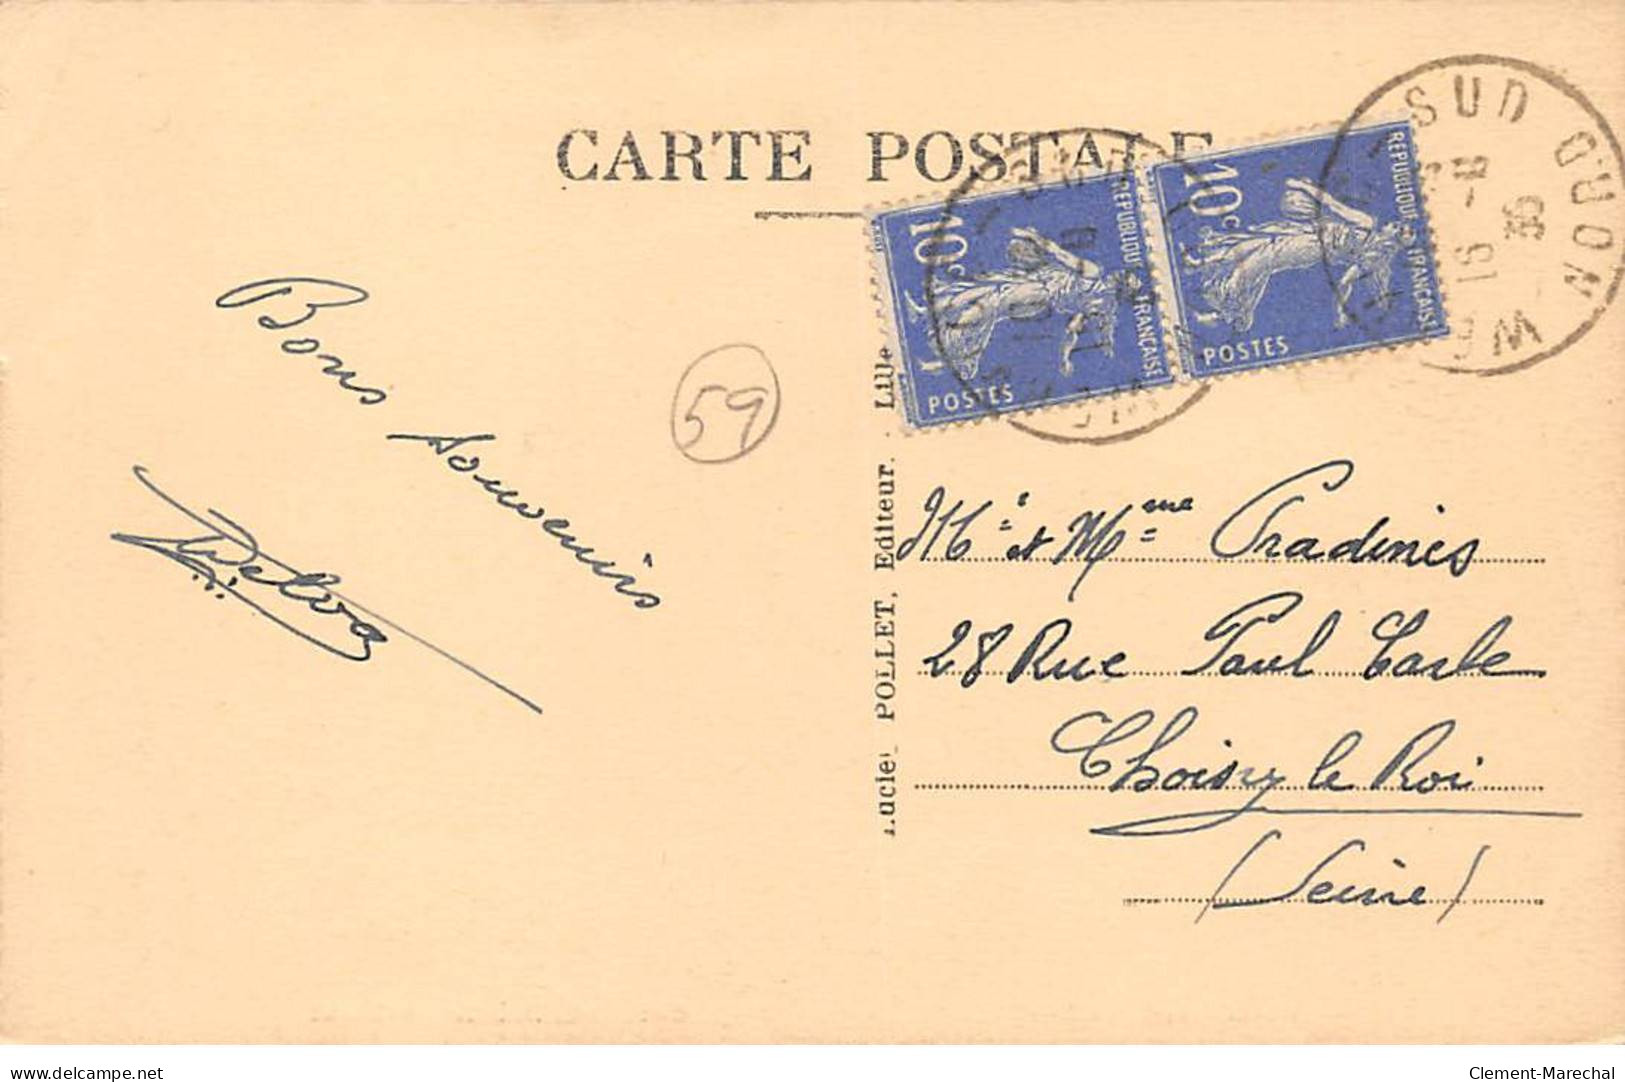 CARTE POSTALE
RÉPUBLIQUE FRANÇAISE
10c
POSTES
RÉPUBLIQUE FRANÇAISE
10c
POSTES
SUD
NORD
16 - 8
36
Bons
souvenirs
59
Lucien POLLET, Editeur. Lille
Mr et Mme Pradines
28 Rue Paul Carle
Choisy le Roi
(Seine)
delcampe.net
Clement-Marechal